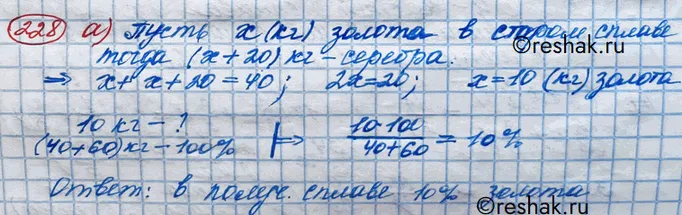 228 а) Пусть x (кг) золота в старом сплаве
©reshak.ru
тогда (x+20) кг – серебра.
⇒ x + x + 20 = 40; 2x = 20; x = 10 (кг) золота
10 кг – ?
(40+60) кг – 100%
⇒ 10·100 / 40+60 = 10%
Ответ: в получ. сплаве 10% золота
©reshak.ru